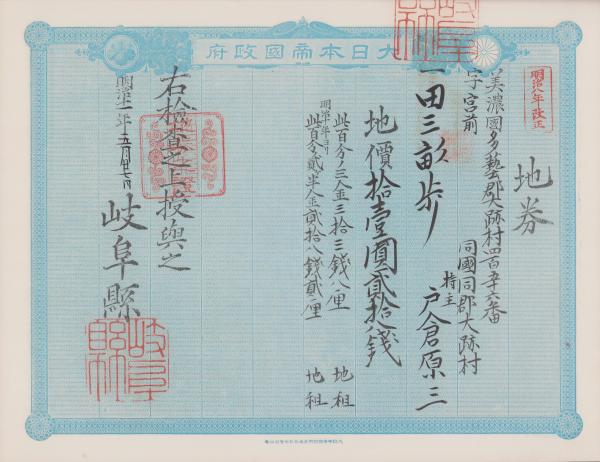 大日本帝國政府
明治八年改正
地券
美濃國多藝郡大跡村四百五十六番
字宮前
同國同郡大跡村
持主 戸倉原三
一田三畝歩
地價拾壹圓貳拾八錢
此百分ノ三金三拾三錢八厘 地租
明治十年ヨリ
此百分ノ貳半金貳拾八錢貳厘 地租
右檢査之上授與之
明治十一年十五月廿七日
岐阜縣